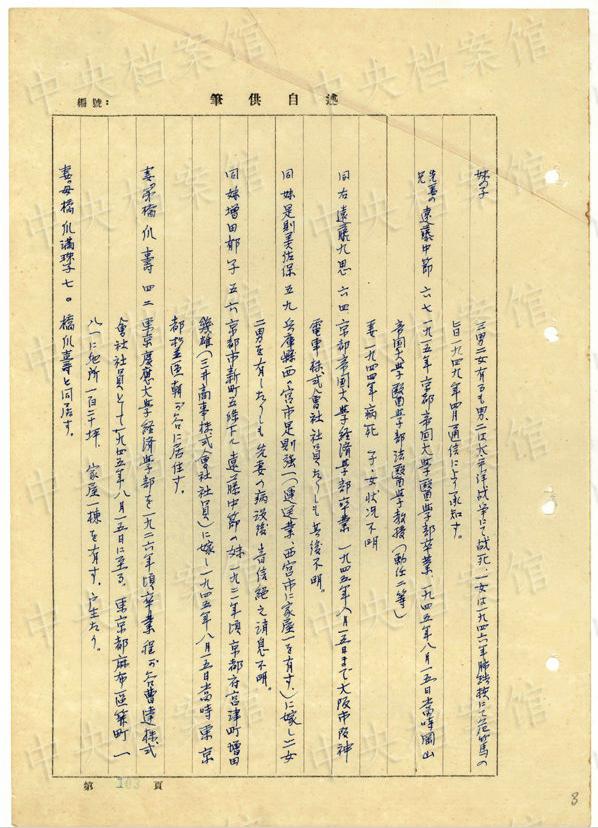 筆供自述
編號：
妹の子
三男二女有るも男二は太平洋战争にて战死、一女は一九四六年肺結核にて危篤の
旨一九四九年四月通信により承知す。
先妻の兄 遠藤中節 六七 一九一五年京都帝国大学醫学部卒業 一九四五年八月一五日当時岡山
帝国大学醫学部法醫学教授（勅任二等）
妻 一九四四年病死 子、女状况不明
同右 遠藤九思 六四 京都帝国大学経済学部卒業 一九四五年八月一五日まで大阪市阪神
電車株式會社社員たりしも其後不明。
同妹 足則美佐保 五九 兵庫縣西宮市足則強一（運送業、西宮市に家屋一を有す。）に嫁し二女
二男を有したりしも先妻の病没後音信絶之消息不明。
同妹 增田郁子 五六 京都市新町五條下ル 遠藤中節の妹 一九二一年頃京都府宮津町增田
幾雄（三井商事株式會社社員）に嫁し一九四五年八月一五日当時東京
都杉並區堀ノ内に居住す。
妻の弟 橋爪壽 四二 東京慶應大学経済学部を一九二六年頃卒業程ヶ谷曹達株式
會社社員として一九四五年八月一五日に至る。東京都麻布區簞町一
八一に地所一百二十坪、家屋一棟を有す。戸主たり。
妻の母 橋爪満瑠子 七〇 橋爪壽と同居す。
第 103 頁
8
中央档案馆